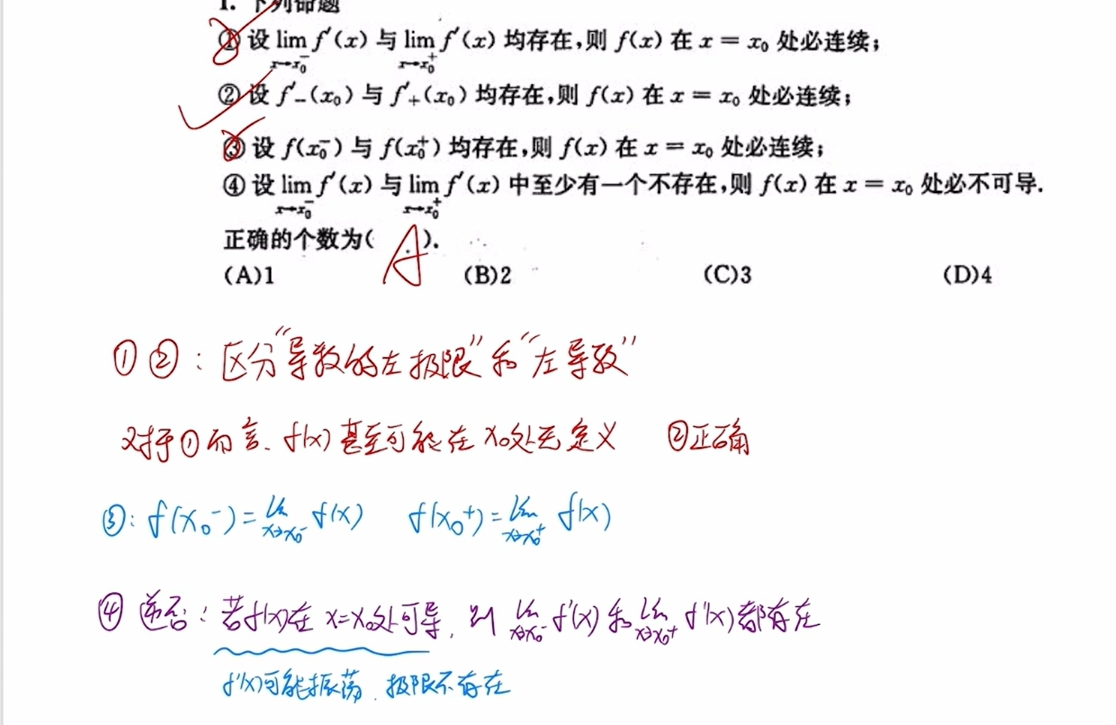 1. 下列命题
① 设 lim_{x→x₀⁻} f′(x) 与 lim_{x→x₀⁺} f′(x) 均存在,则 f(x) 在 x = x₀ 处必连续;
② 设 f′₋(x₀) 与 f′₊(x₀) 均存在,则 f(x) 在 x = x₀ 处必连续;
③ 设 f(x₀⁻) 与 f(x₀⁺) 均存在,则 f(x) 在 x = x₀ 处必连续;
④ 设 lim_{x→x₀⁻} f′(x) 与 lim_{x→x₀⁺} f′(x) 中至少有一个不存在,则 f(x) 在 x = x₀ 处必不可导.
正确的个数为( A ).
(A)1 (B)2 (C)3 (D)4
①②:区分“导数的左极限”和“左导数”
对于①而言、f(x)甚至可能在x₀处无定义 ②正确
③: f(x₀⁻)=lim_{x→x₀⁻} f(x) f(x₀⁺)=lim_{x→x₀⁺} f(x)
④ 逆否:若f(x)在x=x₀处可导,则 lim_{x→x₀⁻} f′(x)和lim_{x→x₀⁺} f′(x)都存在
f′(x)可能振荡.极限不存在